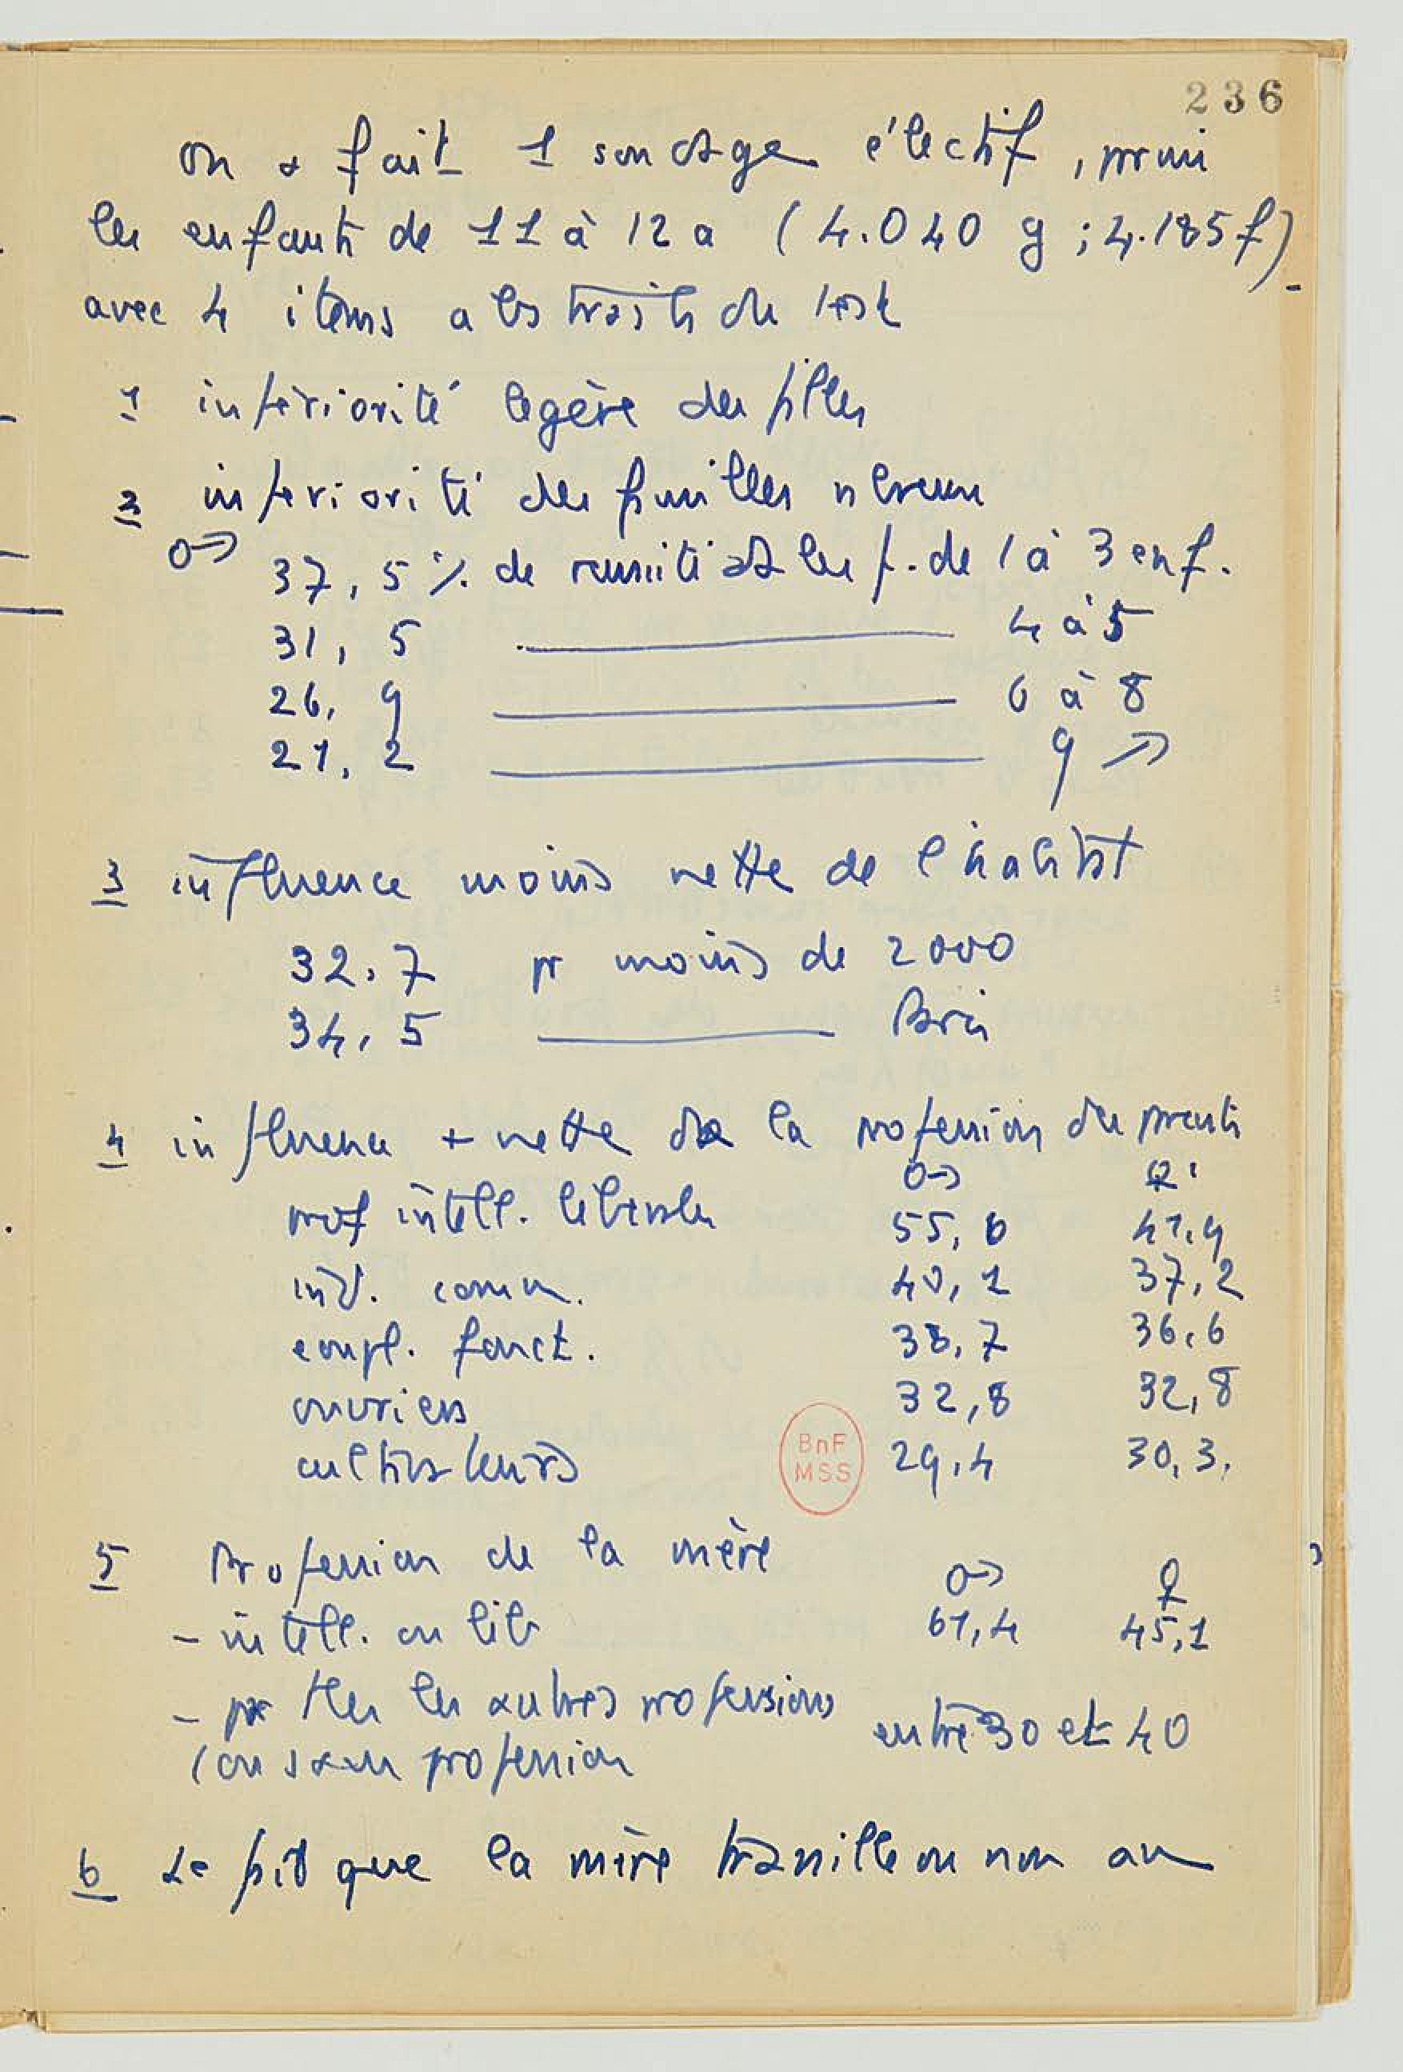 236
on a fait 1 sondage électif, parmi
les enfants de 11 à 12 a (4.040 g ; 4.185 f)
avec 4 items abstraits du test
1 infériorité légère des filles
2 inferiorité des familles nbreuses
♂ 37,5 % de réussite ds les f. de 1 à 3 enf.
31,5 ——— 4 à 5
26,9 ——— 6 à 8
21,2 ——— 9 ↗
3 influence moins nette de l'habitat
32,7 pr moins de 2000
34,5 ——— Paris
4 influence + nette de la profession des parents
♂ ♀
prof intell. libérales 55,6 41,9
ind. comm. 40,1 37,2
empl. fonct. 38,7 36,6
ouvriers 32,8 32,8
cultivateurs 29,4 30,3.
BnF
MSS
5 Profession de la mère
♂ ♀
- intell. ou lib 61,4 45,1
- pr ttes les autres professions entre 30 et 40
(ou sans profession
6 Le fait que la mère travaille ou non au